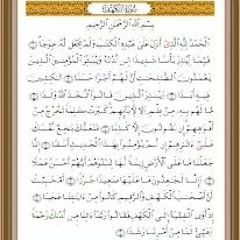 سُورَةُ الكَهْفِ
بِسْمِ اللَّهِ الرَّحْمَٰنِ الرَّحِيمِ
الْحَمْدُ لِلَّهِ الَّذِي أَنزَلَ عَلَىٰ عَبْدِهِ الْكِتَابَ وَلَمْ يَجْعَل لَّهُ عِوَجًا ۜ ١
قَيِّمًا لِّيُنذِرَ بَأْسًا شَدِيدًا مِّن لَّدُنْهُ وَيُبَشِّرَ الْمُؤْمِنِينَ الَّذِينَ
يَعْمَلُونَ الصَّالِحَاتِ أَنَّ لَهُمْ أَجْرًا حَسَنًا ٢ مَّاكِثِينَ فِيهِ
أَبَدًا ٣ وَيُنذِرَ الَّذِينَ قَالُوا اتَّخَذَ اللَّهُ وَلَدًا ٤ مَّا
لَهُم بِهِ مِنْ عِلْمٍ وَلَا لِآبَائِهِمْ كَبُرَتْ كَلِمَةً تَخْرُجُ مِنْ
أَفْوَاهِهِمْ إِن يَقُولُونَ إِلَّا كَذِبًا ٥ فَلَعَلَّكَ بَاخِعٌ نَّفْسَكَ
عَلَىٰ آثَارِهِمْ إِن لَّمْ يُؤْمِنُوا بِهَٰذَا الْحَدِيثِ أَسَفًا ٦ إِنَّا
جَعَلْنَا مَا عَلَى الْأَرْضِ زِينَةً لَّهَا لِنَبْلُوَهُمْ أَيُّهُمْ أَحْسَنُ عَمَلًا
٧ وَإِنَّا لَجَاعِلُونَ مَا عَلَيْهَا صَعِيدًا جُرُزًا ٨ أَمْ حَسِبْتَ
أَنَّ أَصْحَابَ الْكَهْفِ وَالرَّقِيمِ كَانُوا مِنْ آيَاتِنَا عَجَبًا ٩
إِذْ أَوَى الْفِتْيَةُ إِلَى الْكَهْفِ فَقَالُوا رَبَّنَا آتِنَا مِن لَّدُنكَ رَحْمَةً
وَهَيِّئْ لَنَا مِنْ أَمْرِنَا رَشَدًا ١٠